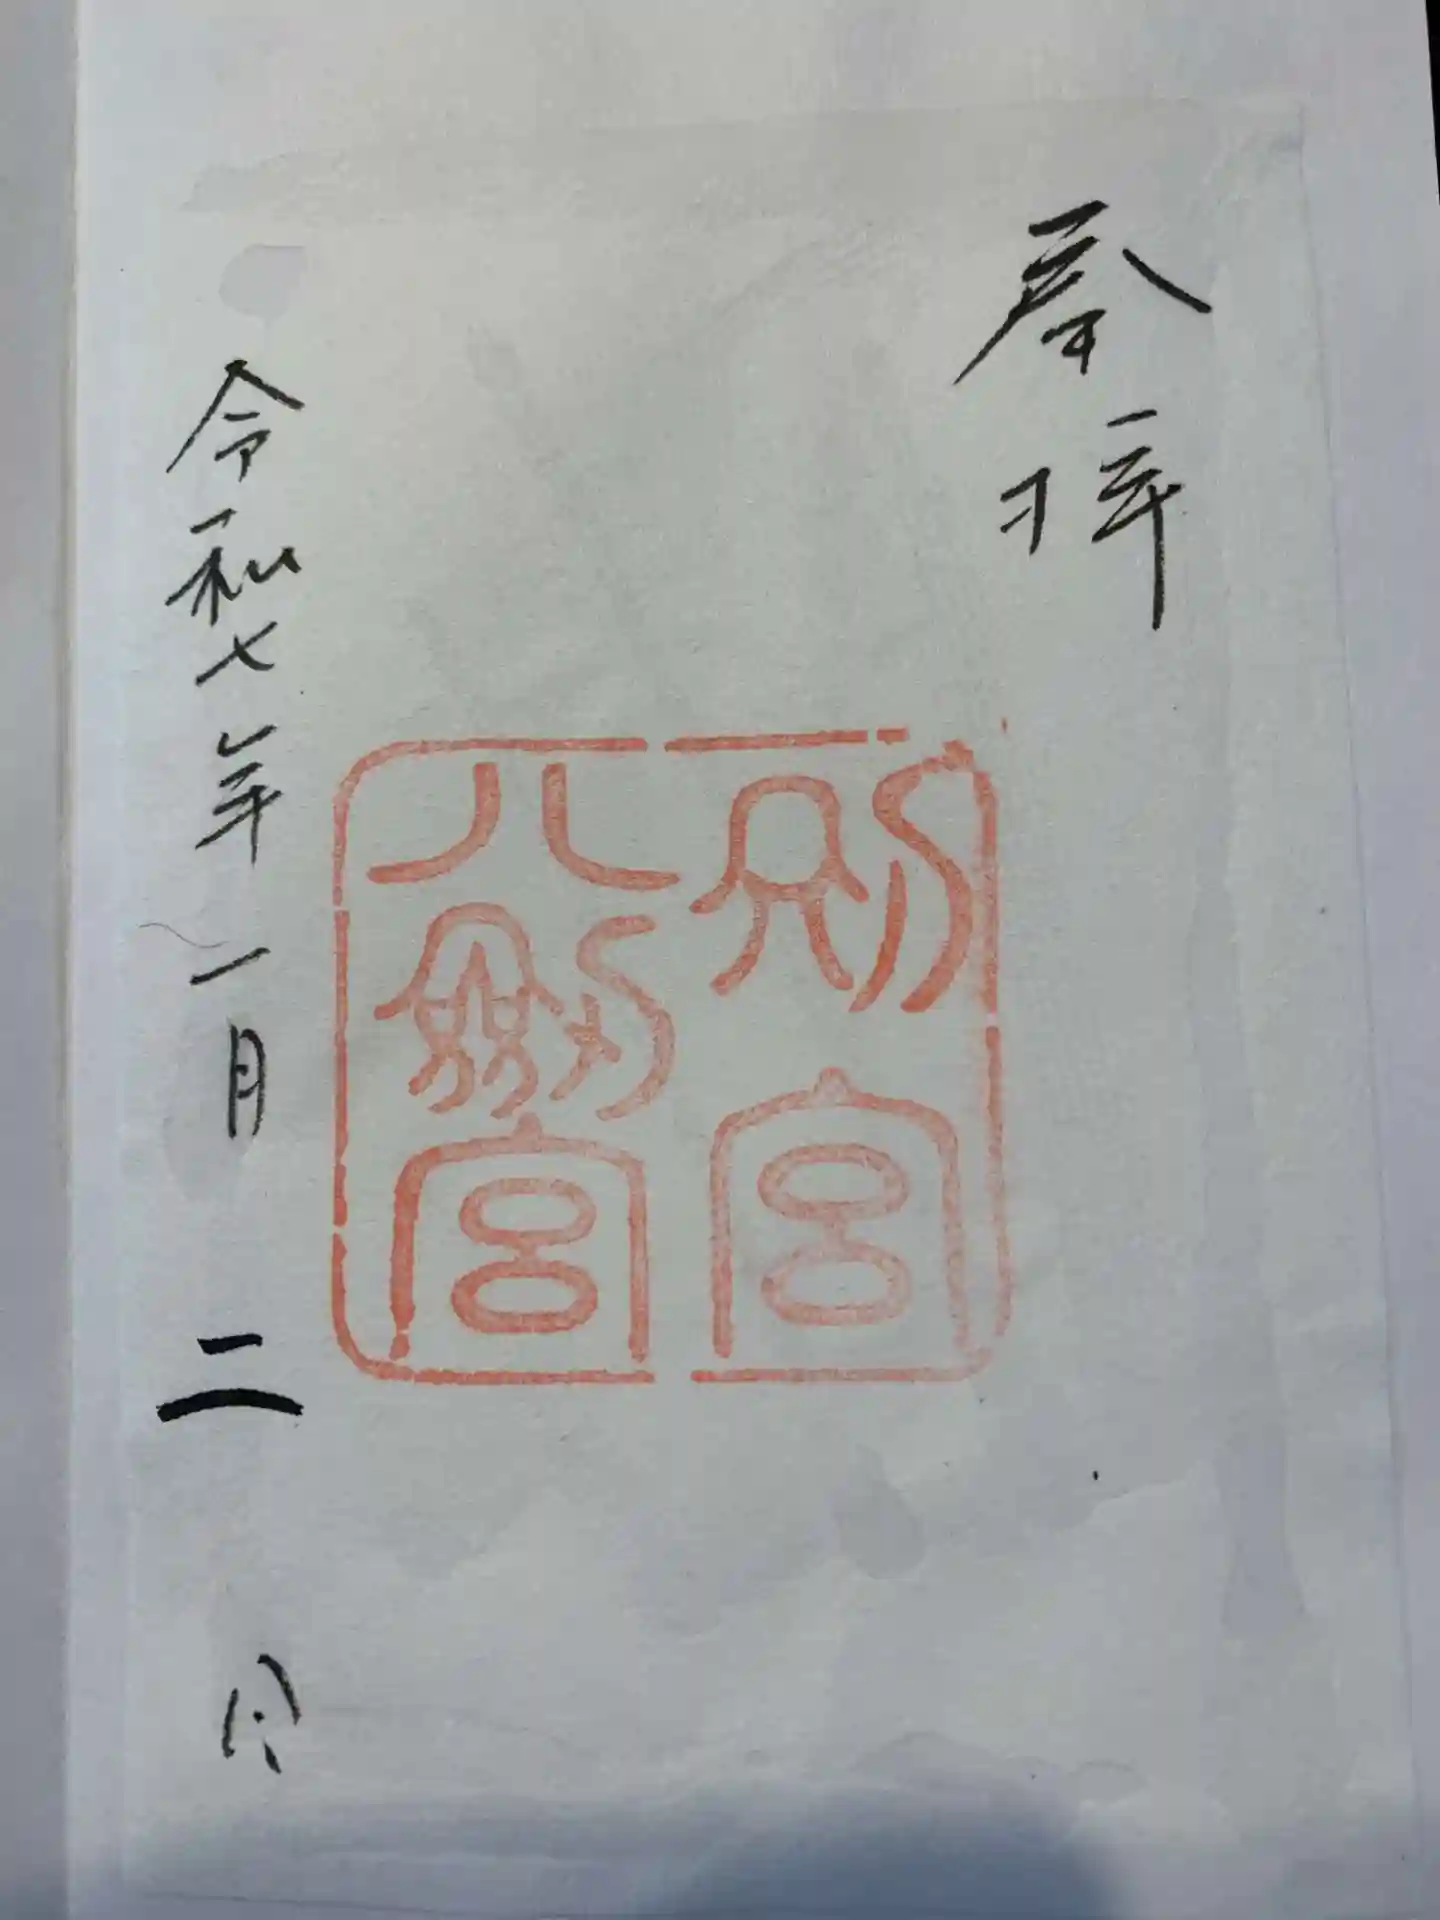 奉拝
別宮
八劔宮
令和七年一月二日